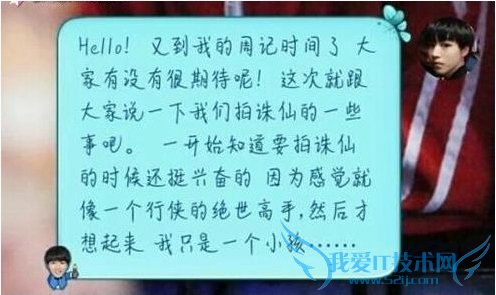 Hello! 又到我的周记时间了 大
家有没有很期待呢! 这次就跟
大家说一下我们拍诛仙的一些
事吧。 一开始知道要拍诛仙
的时候还挺兴奋的 因为感觉就
像一个行侠的绝世高手,然后才
想起来 我只是一个小孩……
我爱IT技术网
www.52ij.com